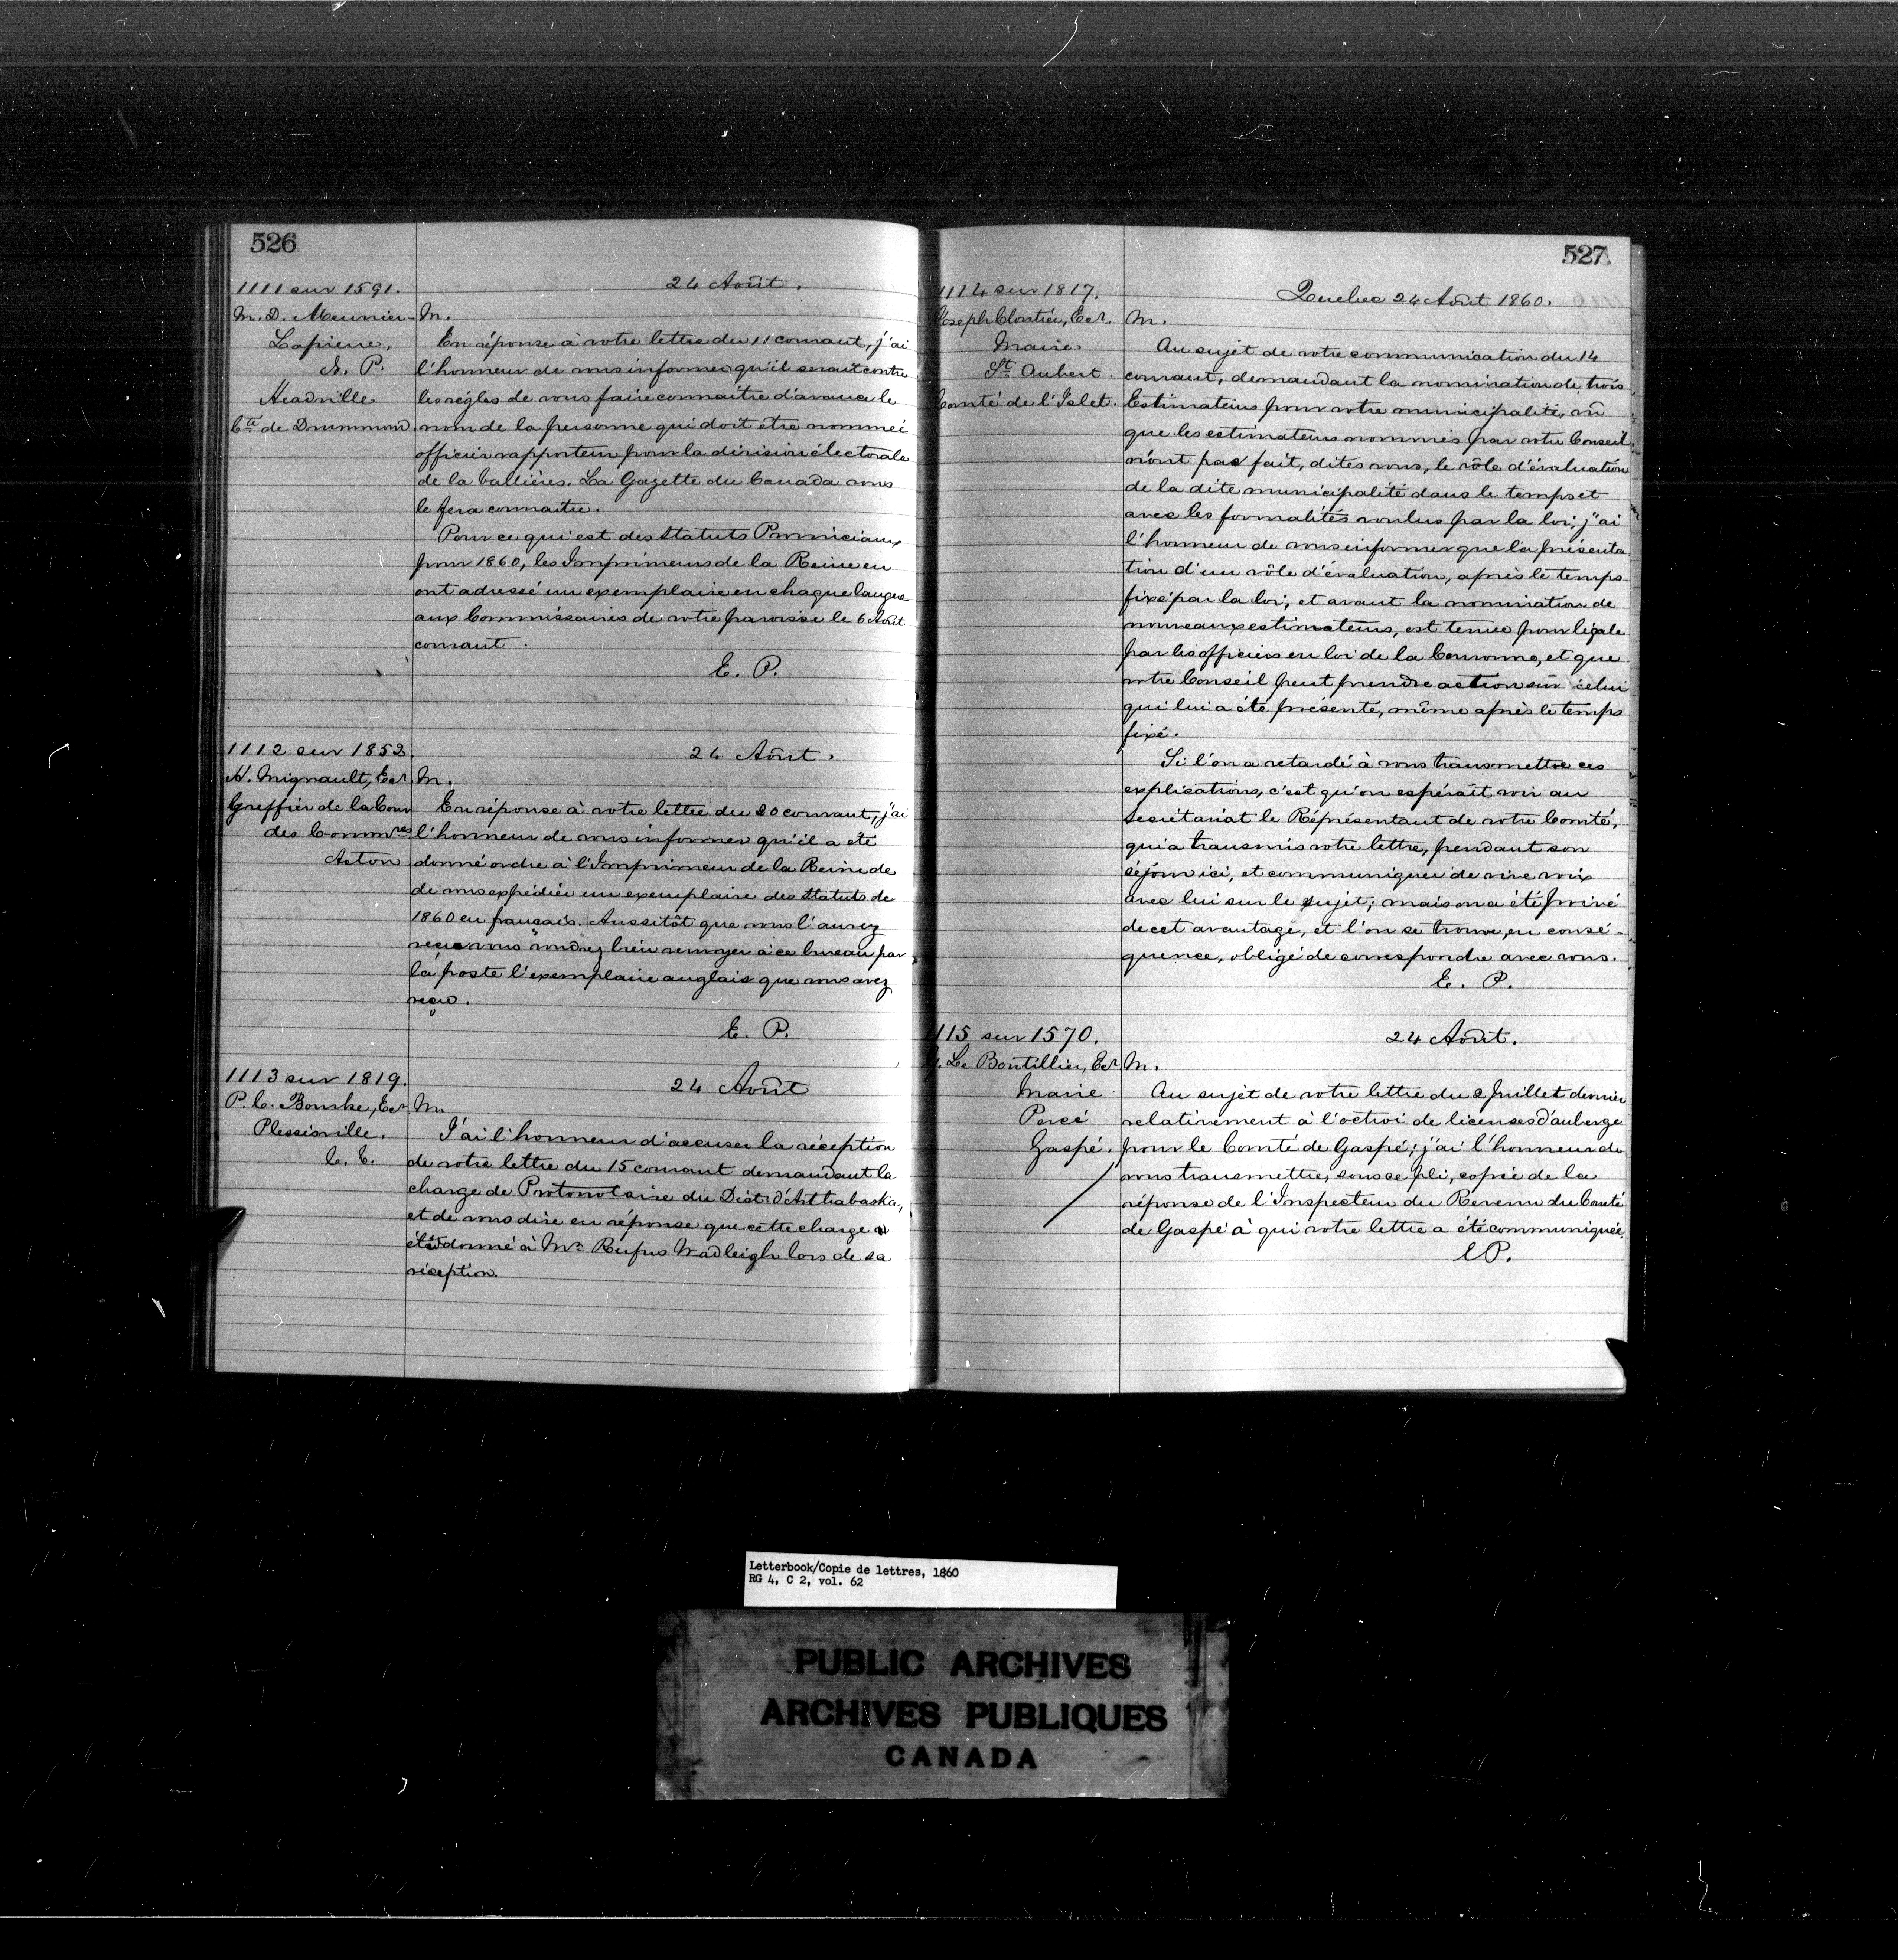 526
1111 sur 1591.
M. D. Meunier-
Lapierre.
N. P.
Headville
Cté de Drummond
24 Août.
M.
En réponse à votre lettre du 11 courant, j'ai
l'honneur de vous informer qu'il serait contre
les règles de vous faire connaitre d'avance le
nom de la personne qui doit être nommé
officier rapporteur pour la division électorale
de la Vallières. La Gazette du Canada vous
le fera connaitre.
Pour ce qui est des Statuts Provinciaux
pour 1860, les Imprimeurs de la Reine en
ont adressé un exemplaire en chaque langue
aux Commissaires de votre paroisse le 6 Août
courant.
E. P.
1112 sur 1852
H. Mignault, Ecr
Greffier de la Cour
des Commres
Acton
24 Août.
M.
En réponse à votre lettre du 20 courant, j'ai
l'honneur de vous informer qu'il a été
donné ordre à l'Imprimeur de la Reine de
de vous expédier un exemplaire des Statuts de
1860 en français. Aussitôt que vous l'aurez
reçu vous voudrez bien renvoyer à ce bureau par
la poste l'exemplaire anglais que vous avez
reçu.
E. P.
1113 sur 1819.
P. C. Bourke, Ecr
Plessisville.
C. E.
24 Août
M.
J'ai l'honneur d'accuser la réception
de votre lettre du 15 courant demandant la
charge de Protonotaire du Distr d'Arthabaska,
et de vous dire en réponse que cette charge a
été donné à Mr. Rufus Wadleigh lors de sa
réception.
527
1114 sur 1817.
Joseph Cloutier, Ecr.
Maire
St Aubert
Comté de l'Islet.
Quebec 24 Août 1860.
M.
Au sujet de votre communication du 14
courant, demandant la nomination de trois
Estimateurs pour votre municipalité, vû
que les estimateurs nommés par votre Conseil
n'ont pas fait, dites vous, le rôle d'évaluation
de la dite municipalité dans le temps et
avec les formalités voulus par la loi, j'ai
l'honneur de vous informer que la présenta
tion d'un rôle d'évaluation, après le temps
fixé par la loi, et avant la nomination de
nouveaux estimateurs, est tenue pour légale
par les officiers en loi de la Couronne, et que
votre Conseil peut prendre action sur celui
qui lui a été présenté, même après le temps
fixé.
Si l'on a retardé à vous transmettre ces
explications, c'est qu'on espérait voir au
Secrétariat le Réprésentant de votre Comté,
qui a transmis votre lettre, pendant son
séjour ici, et communiquer de vive voix
avec lui sur le sujet; mais on a été privé
de cet avantage, et l'on se trouve, en consé-
quence, obligé de correspondre avec vous.
E. P.
1115 sur 1570.
Le Boutillier, Ecr
Maire
Percé
Gaspé.
24 Août.
M.
Au sujet de votre lettre du 2 Juillet dernier
relativement à l'octroi de licenses d'auberge
pour le Comté de Gaspé; j'ai l'honneur de
vous transmettre, sous ce pli, copie de la
réponse de l'Inspecteur du Revenu du Comté
de Gaspé à qui votre lettre a été communiquée.
E P.
Letterbook/Copie de lettres, 1860
RG 4, C 2, vol. 62
PUBLIC ARCHIVES
ARCHIVES PUBLIQUES
CANADA